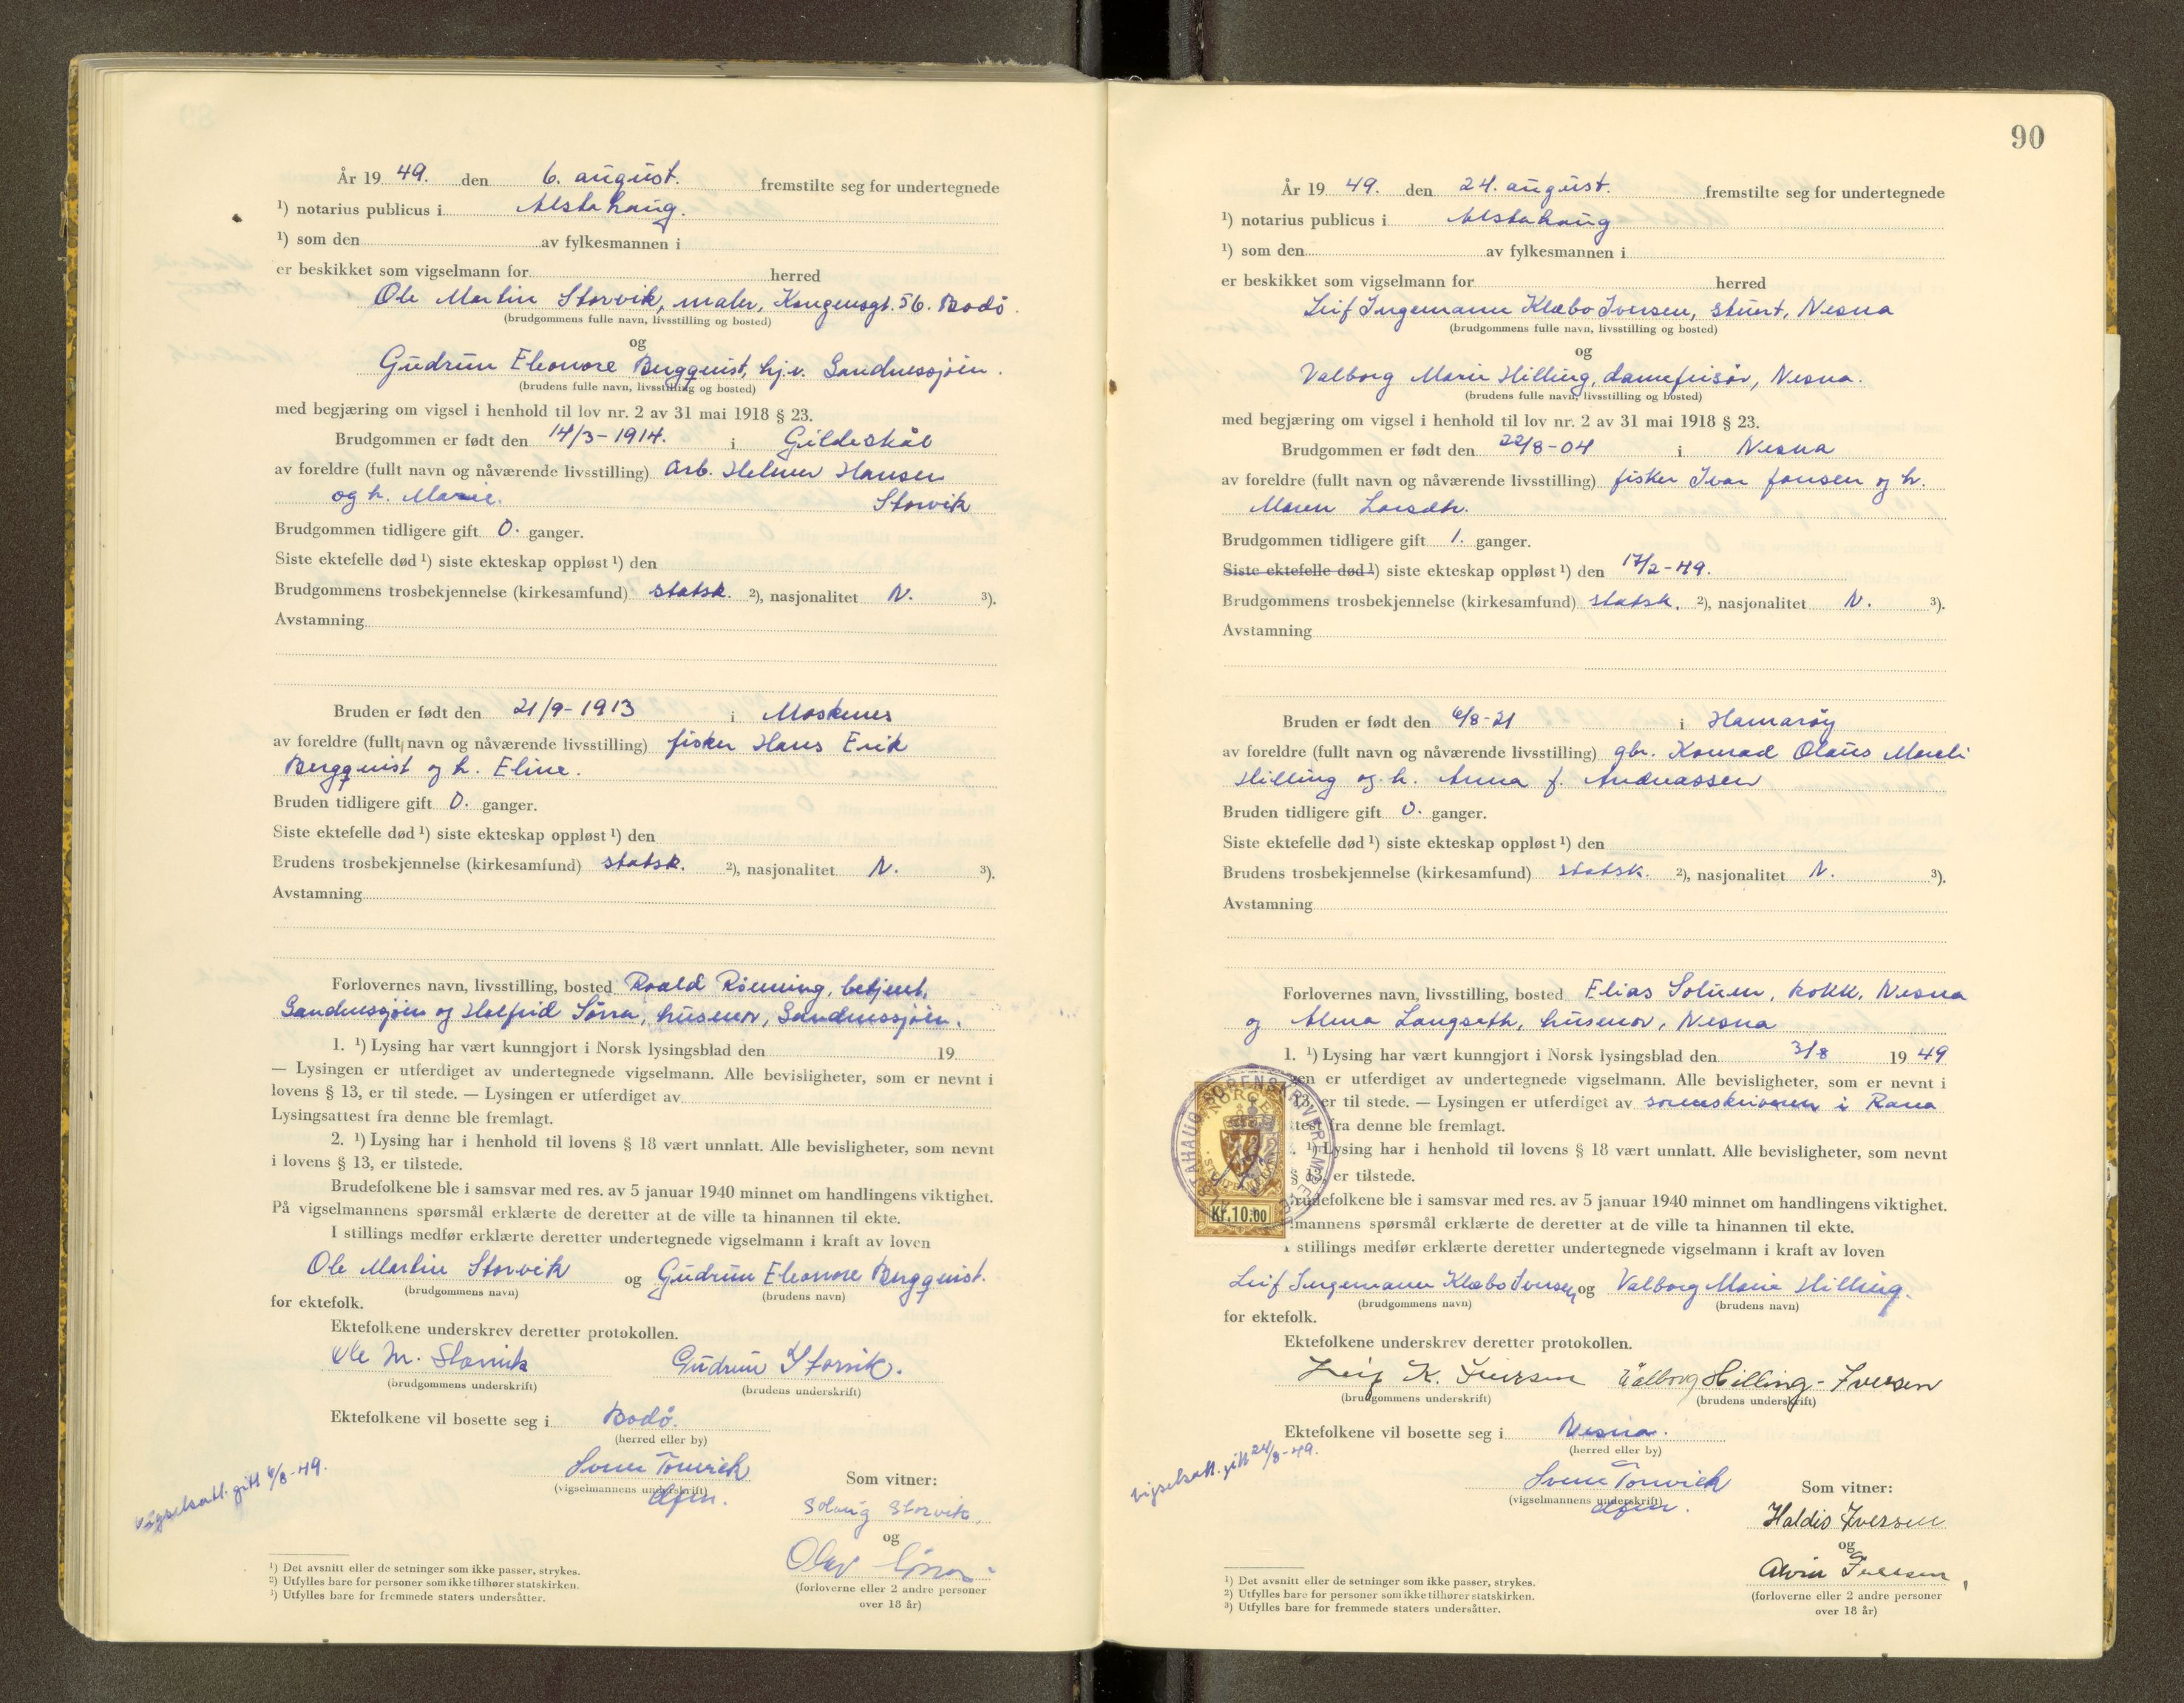 År 19 49. den 6. august. fremstilte seg for undertegnede
¹) notarius publicus i Alstahaug.
¹) som den av fylkesmannen i
er beskikket som vigselmann for herred
Ole Martin Storvik, maler, Kongensgt. 56. Bodö.
(brudgommens fulle navn, livsstilling og bosted)
og
Gudrun Eleonore Bergquist, hj.v. Sandnessjöen.
(brudens fulle navn, livsstilling og bosted)
med begjæring om vigsel i henhold til lov nr. 2 av 31 mai 1918 § 23.
Brudgommen er født den 14/3-1914. i Gildeskål
av foreldre (fullt navn og nåværende livsstilling) arb. Helmer Hansen
og h. Marie. Storvik
Brudgommen tidligere gift 0. ganger.
Siste ektefelle død ¹) siste ekteskap oppløst ¹) den
Brudgommens trosbekjennelse (kirkesamfund) statsk. ²), nasjonalitet N. ³).
Avstamning
Bruden er født den 21/9-1913 i Moskenes
av foreldre (fullt navn og nåværende livsstilling) fisker Hans Erik
Bergquist og h. Eline.
Bruden tidligere gift 0. ganger.
Siste ektefelle død ¹) siste ekteskap oppløst ¹) den
Brudens trosbekjennelse (kirkesamfund) statsk. ²), nasjonalitet N. ³).
Avstamning
Forlovernes navn, livsstilling, bosted Roald Rönning, betjent,
Sandnessjöen og Halfrid Sörra, husmor, Sandnessjöen.
1. ¹) Lysing har vært kunngjort i Norsk lysingsblad den 19
— Lysingen er utferdiget av undertegnede vigselmann. Alle bevisligheter, som er nevnt i
lovens § 13, er til stede. — Lysingen er utferdiget av
Lysingsattest fra denne ble fremlagt.
2. ¹) Lysing har i henhold til lovens § 18 vært unnlatt. Alle bevisligheter, som nevnt
i lovens § 13, er tilstede.
Brudefolkene ble i samsvar med res. av 5 januar 1940 minnet om handlingens viktighet.
På vigselmannens spørsmål erklærte de deretter at de ville ta hinannen til ekte.
I stillings medfør erklærte deretter undertegnede vigselmann i kraft av loven
Ole Martin Storvik og Gudrun Eleonore Bergquist.
(brudgommens navn) (brudens navn)
for ektefolk.
Ektefolkene underskrev deretter protokollen.
Ole M. Storvik Gudrun Storvik.
(brudgommens underskrift) (brudens underskrift)
Ektefolkene vil bosette seg i Bodö.
(herred eller by)
vigselsatt. gitt 6/8-49.
(vigselmannens underskrift)
Som vitner:
Solveig Storvik,
og
Olav
(forloverne eller 2 andre personer
over 18 år)
¹) Det avsnitt eller de setninger som ikke passer, strykes.
²) Utfylles bare for personer som ikke tilhører statskirken.
³) Utfylles bare for fremmede staters undersåtter.
90
År 19 49. den 24. august. fremstilte seg for undertegnede
¹) notarius publicus i Alstahaug
¹) som den av fylkesmannen i
er beskikket som vigselmann for herred
Leif Ingemann Klæbo Iversen, stuert, Nesna
(brudgommens fulle navn, livsstilling og bosted)
og
Valborg Marie Hilling, damefrisör, Nesna.
(brudens fulle navn, livsstilling og bosted)
med begjæring om vigsel i henhold til lov nr. 2 av 31 mai 1918 § 23.
Brudgommen er født den 22/8-04 i Nesna
av foreldre (fullt navn og nåværende livsstilling) fisker Ivar Jonsen og h.
Maren Larsdtr.
Brudgommen tidligere gift 1. ganger.
Siste ektefelle død ¹) siste ekteskap oppløst ¹) den 17/2-49.
Brudgommens trosbekjennelse (kirkesamfund) statsk. ²), nasjonalitet N. ³).
Avstamning
Bruden er født den 6/8-21 i Hamaröy
av foreldre (fullt navn og nåværende livsstilling) gbr. Konrad Olaus Mareli
Hilling og h. Anna f. Andreassen
Bruden tidligere gift 0. ganger.
Siste ektefelle død ¹) siste ekteskap oppløst ¹) den
Brudens trosbekjennelse (kirkesamfund) statsk. ²), nasjonalitet N. ³).
Avstamning
Forlovernes navn, livsstilling, bosted Elias Solum, kokk, Nesna
og Alma Langseth, husmor, Nesna
1. ¹) Lysing har vært kunngjort i Norsk lysingsblad den 3/8 19 49
gen er utferdiget av undertegnede vigselmann. Alle bevisligheter, som er nevnt i
13, er til stede. — Lysingen er utferdiget av sorenskriveren i Rana
ttest fra denne ble fremlagt.
¹) Lysing har i henhold til lovens § 18 vært unnlatt. Alle bevisligheter, som nevnt
§ 13, er tilstede.
rudefolkene ble i samsvar med res. av 5 januar 1940 minnet om handlingens viktighet.
mannens spørsmål erklærte de deretter at de ville ta hinannen til ekte.
I stillings medfør erklærte deretter undertegnede vigselmann i kraft av loven
NORGE
Kr.10.00
ALSTAHAUG SORENSKRIVEREMBEDE
Leif Ingemann Klæbo Iversen og Valborg Marie Hilling.
(brudgommens navn) (brudens navn)
for ektefolk.
Ektefolkene underskrev deretter protokollen.
Leif K. Iversen Valborg Hilling-Iversen
(brudgommens underskrift) (brudens underskrift)
Ektefolkene vil bosette seg i Nesna.
(herred eller by)
vigselsatt. gitt 24/8-49.
(vigselmannens underskrift)
Som vitner:
Haldis Iversen
og
Alvin Iversen,
(forloverne eller 2 andre personer
over 18 år)
¹) Det avsnitt eller de setninger som ikke passer, strykes.
²) Utfylles bare for personer som ikke tilhører statskirken.
³) Utfylles bare for fremmede staters undersåtter.